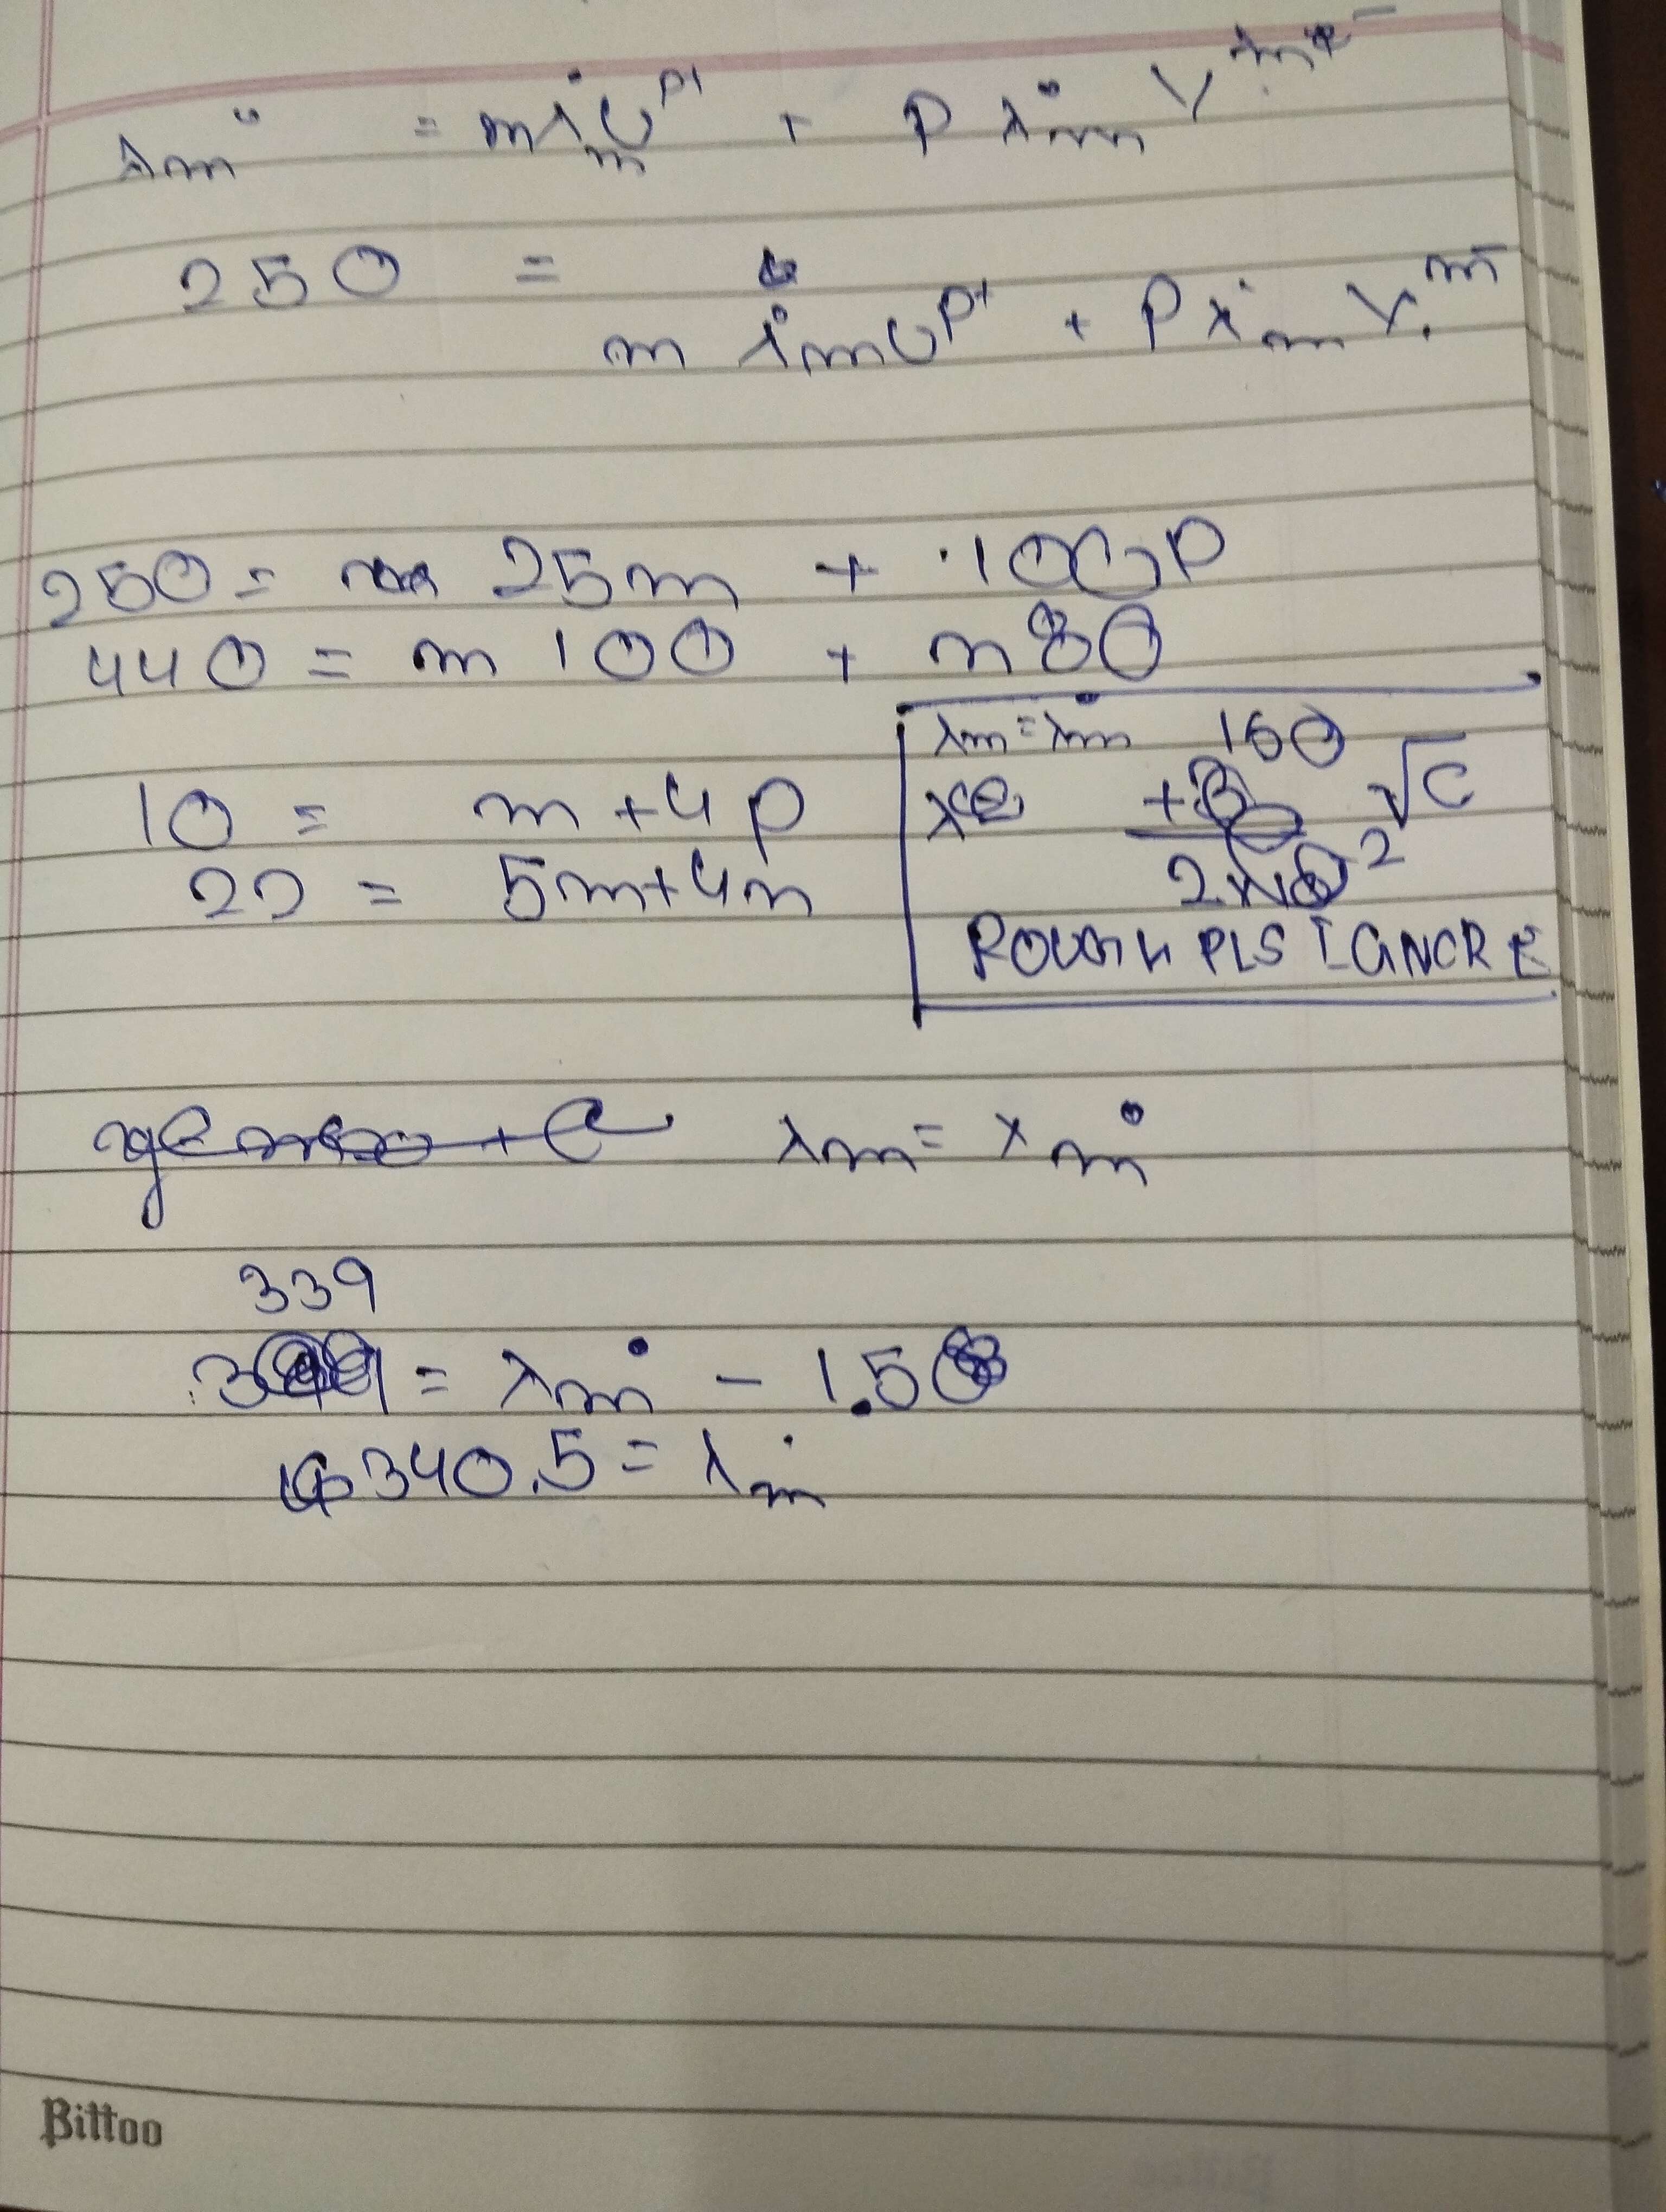 λm° = mλ°m U^p+ + P λ°m V^m-
250 =
m λ°m U^p+ + P λ°m V^m-
250 = 25m + 100P
440 = m 100 + n 80
10 = m + 4p
22 = 5m + 4n
λm = λ°m 160
√C
2×10^2
ROUGH PLS IGNORE
λm = λ°m
339
= λ°m - 1.5
340.5 = λ°m
Bittoo